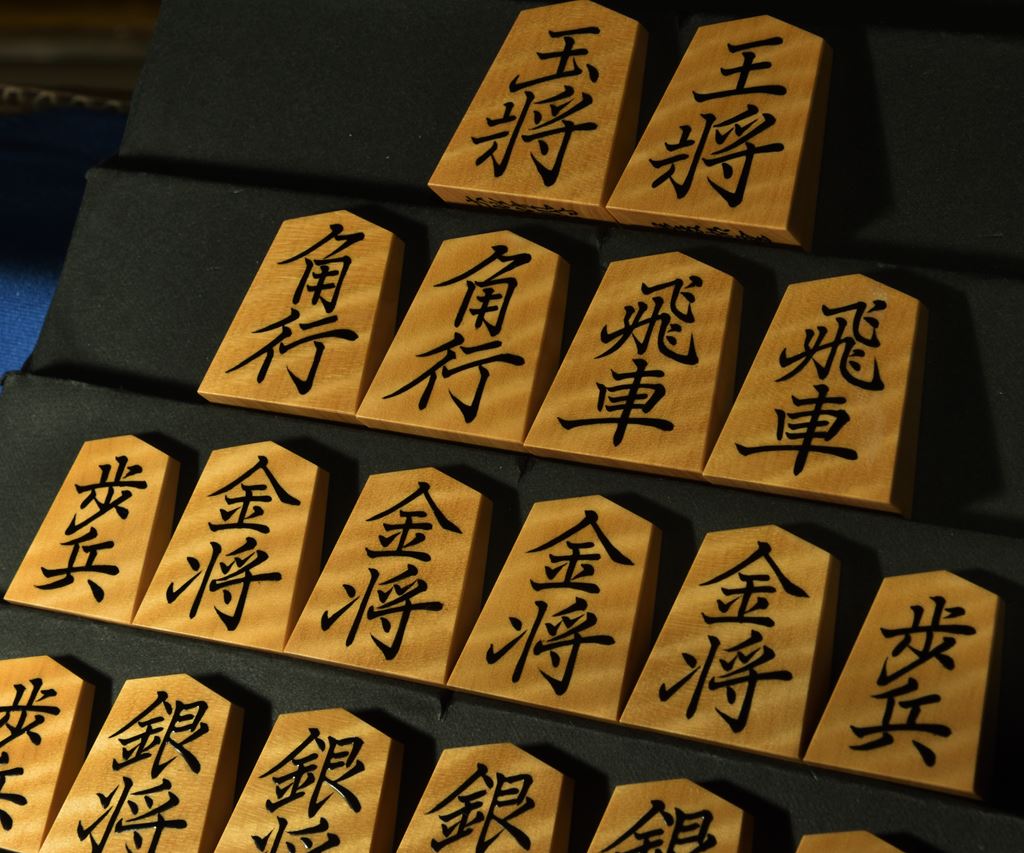 玉将
王将
角行
角行
飛車
飛車
歩兵
金将
金将
金将
金将
歩兵
歩兵
銀将
銀将
銀
銀